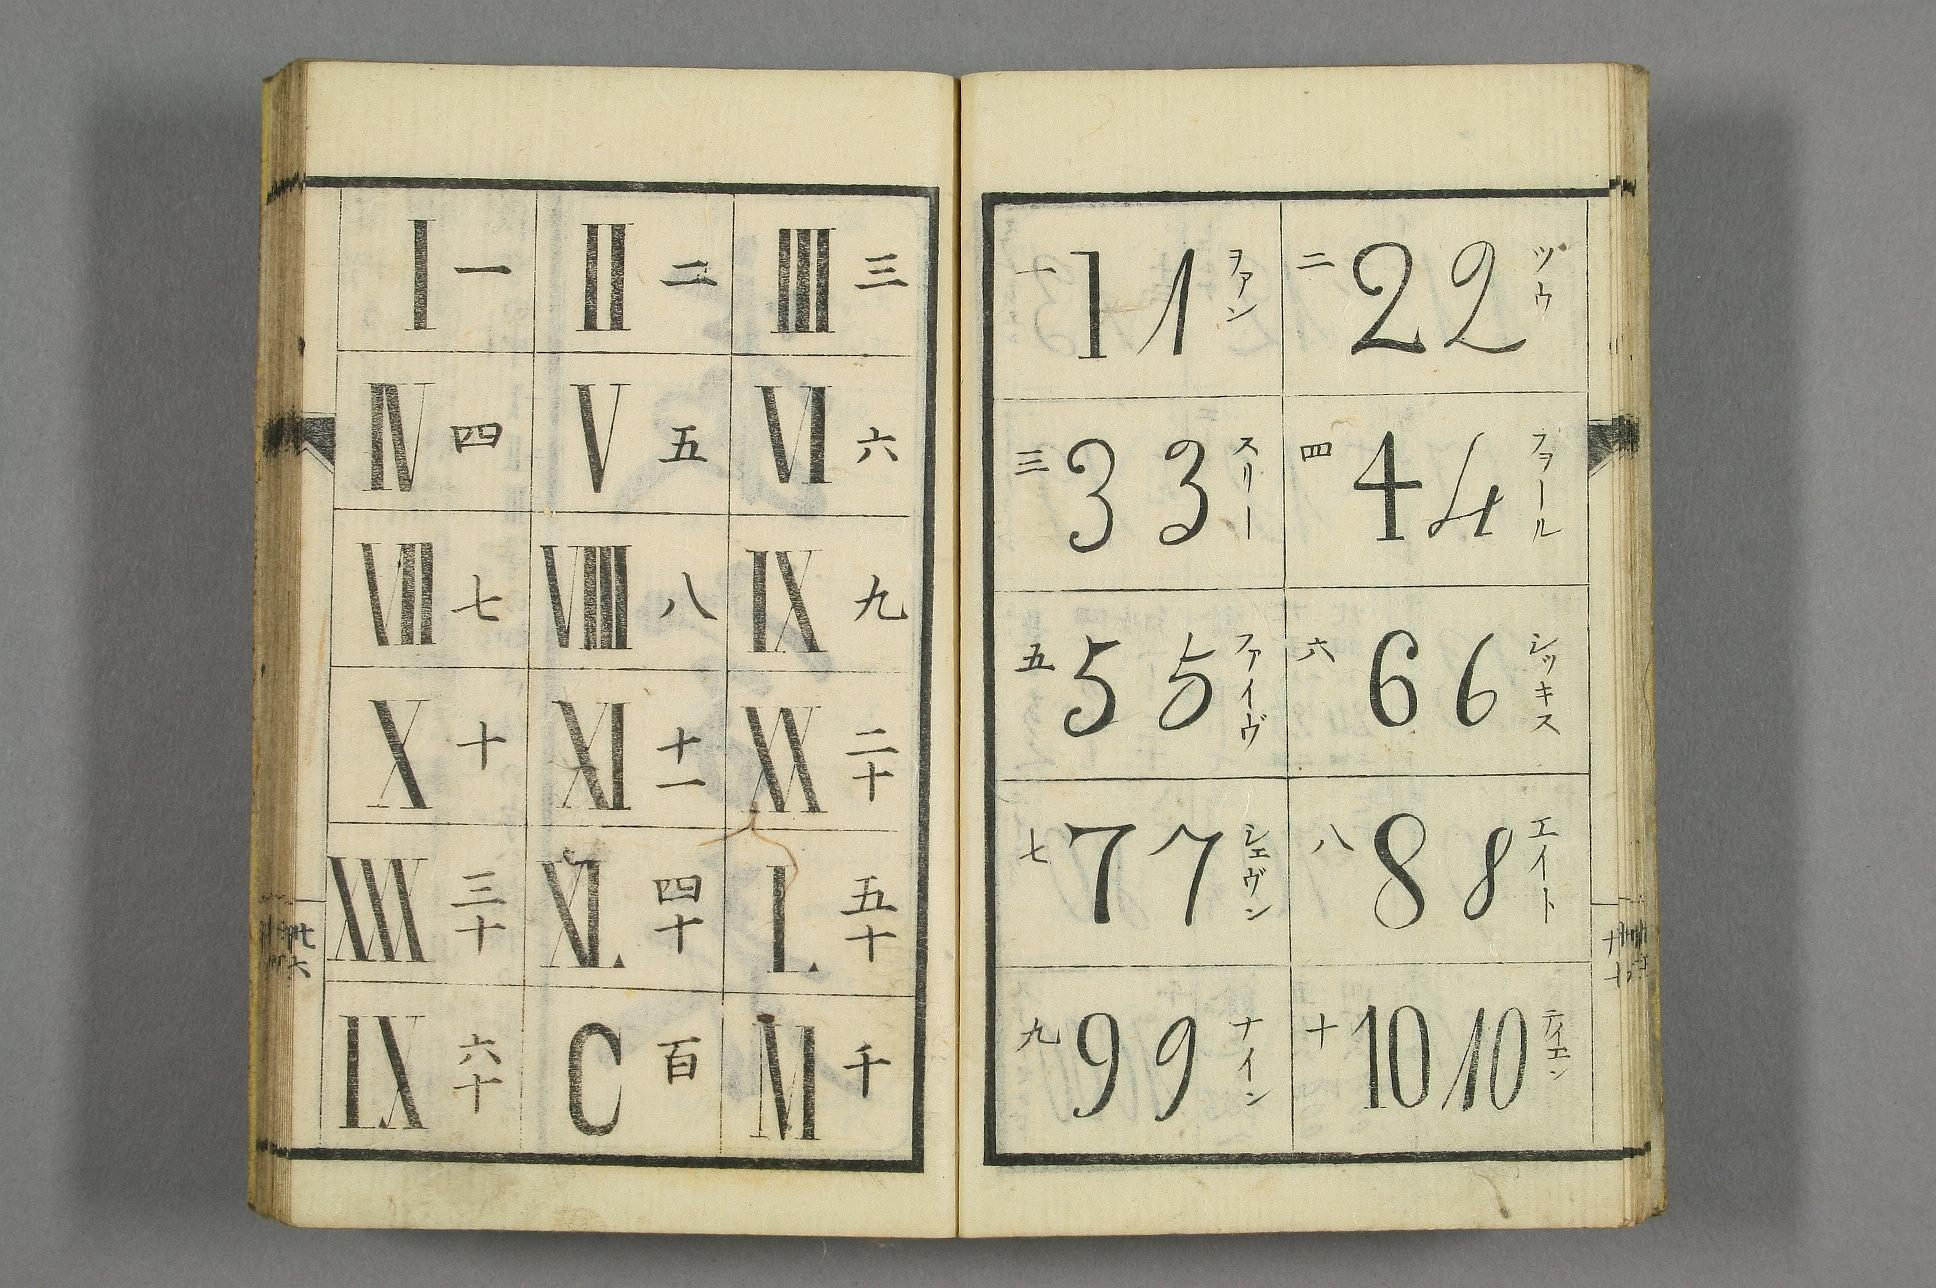 I 一 II 二 III 三
IV 四 V 五 VI 六
VII 七 VIII 八 IX 九
X 十 XI 十一 XX 二十
XXX 三十 XL 四十 L 五十
IX 六十 C 百 M 千
廿六
一 1 1 ヲアン 二 2 2 ツウ
三 3 3 スリー 四 4 4 フヲール
五 5 5 ファイヴ 六 6 6 シッキス
七 7 7 シェヴン 八 8 8 エイト
九 9 9 ナイン 十 10 10 ティエン